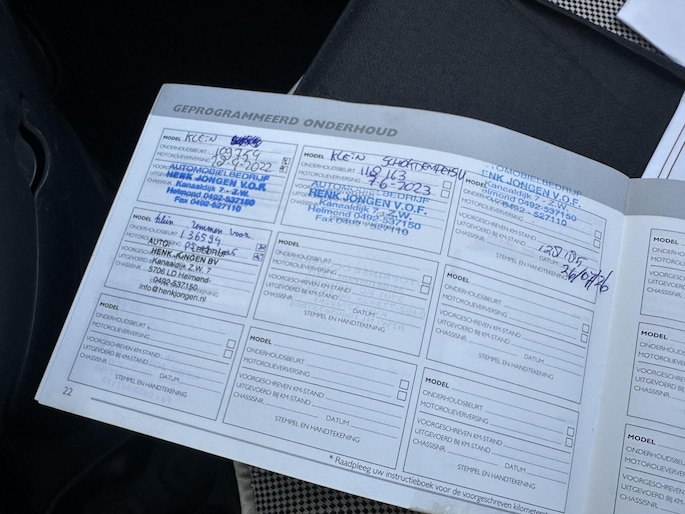 GEPROGRAMMEERD ONDERHOUD
MODEL KLEIN
ONDERHOUDSBEURT
MOTOROLIEVERVERSING
AUTOMOBIELBEDRIJF
HENK JONGEN V.O.F.
Kanaaldijk 7 - Z.W.
Helmond 0492-537150
Fax 0492-527110
CHASSISNR.
MODEL KLEIN
ONDERHOUDSBEURT 118163
MOTOROLIEVERVERSING 7-6-2023
AUTOMOBIELBEDRIJF
HENK JONGEN V.O.F.
Kanaaldijk 7 - Z.W.
Helmond 0492-537150
Fax 0492-527110
CHASSISNR.
MODEL
AUTOMOBIELBEDRIJF
HENK JONGEN V.O.F.
Kanaaldijk 7 - Z.W.
Helmond 0492-537150
0492 - 527110
VOORGESCHREVEN KM-STAND
UITGEVOERD BIJ KM-STAND
CHASSISNR.
STEMPEL EN HANDTEKENING
MODEL klein remmen voor
ONDERHOUDSBEURT 136594
MOTOROLIEVERVERSING
AUTO
HENK JONGEN BV
Kanaaldijk Z.W. 7
5706 LD Helmond
0492-537150
info@henkjongen.nl
CHASSISNR.
MODEL
ONDERHOUDSBEURT
MOTOROLIEVERVERSING
VOORGESCHREVEN KM-STAND
UITGEVOERD BIJ KM-STAND
CHASSISNR. DATUM
STEMPEL EN HANDTEKENING
MODEL
ONDERHOUDSBEURT
MOTOROLIEVERVERSING
VOORGESCHREVEN KM-STAND
UITGEVOERD BIJ KM-STAND
CHASSISNR. DATUM
STEMPEL EN HANDTEKENING
MODEL
ONDERHOUDSBEURT
MOTOROLIEVERVERSING
VOORGESCHREVEN KM-STAND
UITGEVOERD BIJ KM-STAND
CHASSISNR. DATUM
STEMPEL EN HANDTEKENING
MODEL
ONDERHOUDSBEURT
MOTOROLIEVERVERSING
VOORGESCHREVEN KM-STAND
UITGEVOERD BIJ KM-STAND
CHASSISNR. DATUM
STEMPEL EN HANDTEKENING
MODEL
ONDERHOUDSBEURT
MOTOROLIEVERVERSING
VOORGESCHREVEN KM-STAND
UITGEVOERD BIJ KM-STAND
CHASSISNR. DATUM
STEMPEL EN HANDTEKENING
22
* Raadpleeg uw instructieboek voor de voorgeschreven
MODEL
ONDERHOUDSBEURT
VOORGESCHREVEN
UITGEVOERD BIJ
CHASSISNR.
MODEL
ONDERHOUDSBEURT
VOORGESCHREVEN
UITGEVOERD BIJ
CHASSISNR.
MODEL
ONDERHOUDSBEURT
MOTOROLIEVERVERSING
CHASSISNR.